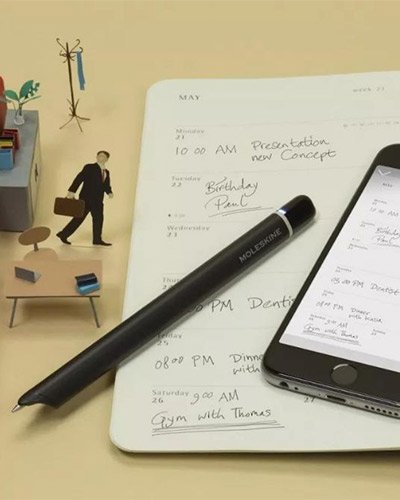 MAY
WEEK 21
Monday
21
10 00 AM Presentation
new Concept
Tuesday
22
Birthday
Paul
Wednesday
23
MOLESKINE
PM Dentis
25
08 00 PM Dinne
with
Saturday
26
9 00 AM
Gym with Thomas
10 00 AM
Birthday
Paul
PM Dentist
08:00 PM Dinner
Gym with Thomas